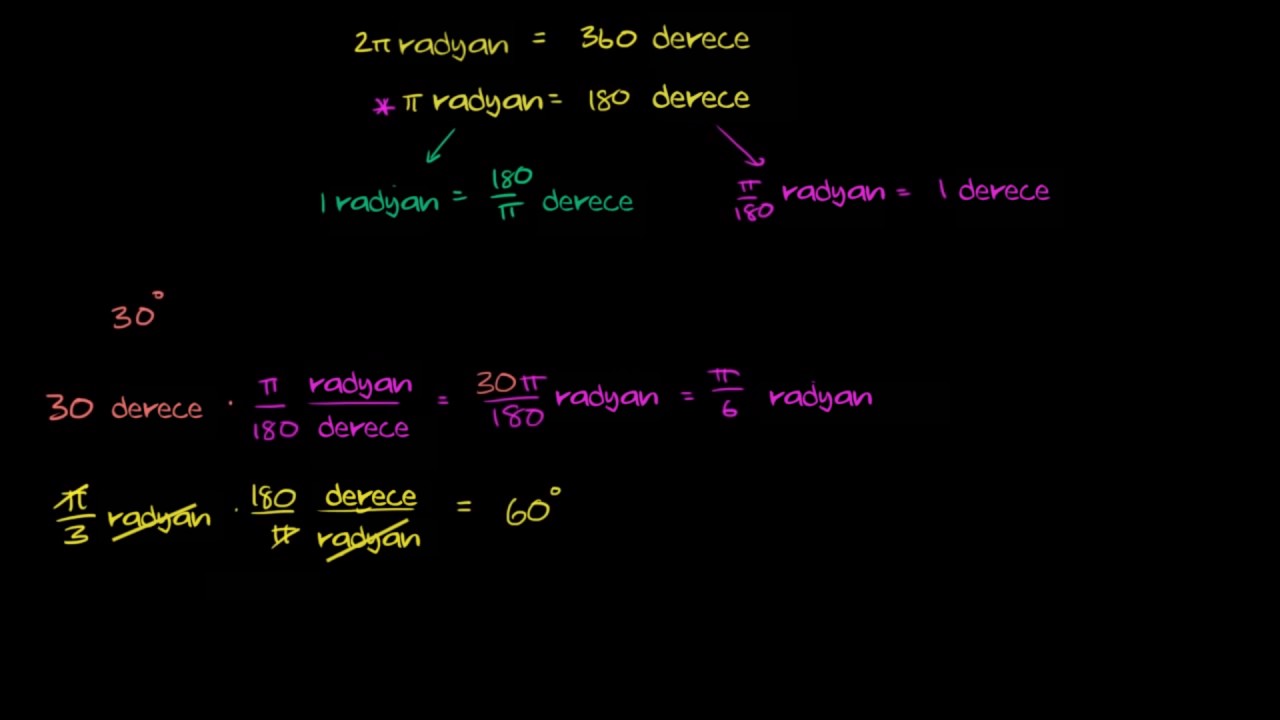 2π radyan = 360 derece
* π radyan = 180 derece
1 radyan = 180/π derece
π/180 radyan = 1 derece
30°
30 derece · π/180 radyan/derece = 30π/180 radyan = π/6 radyan
π/3 radyan · 180/π derece/radyan = 60°